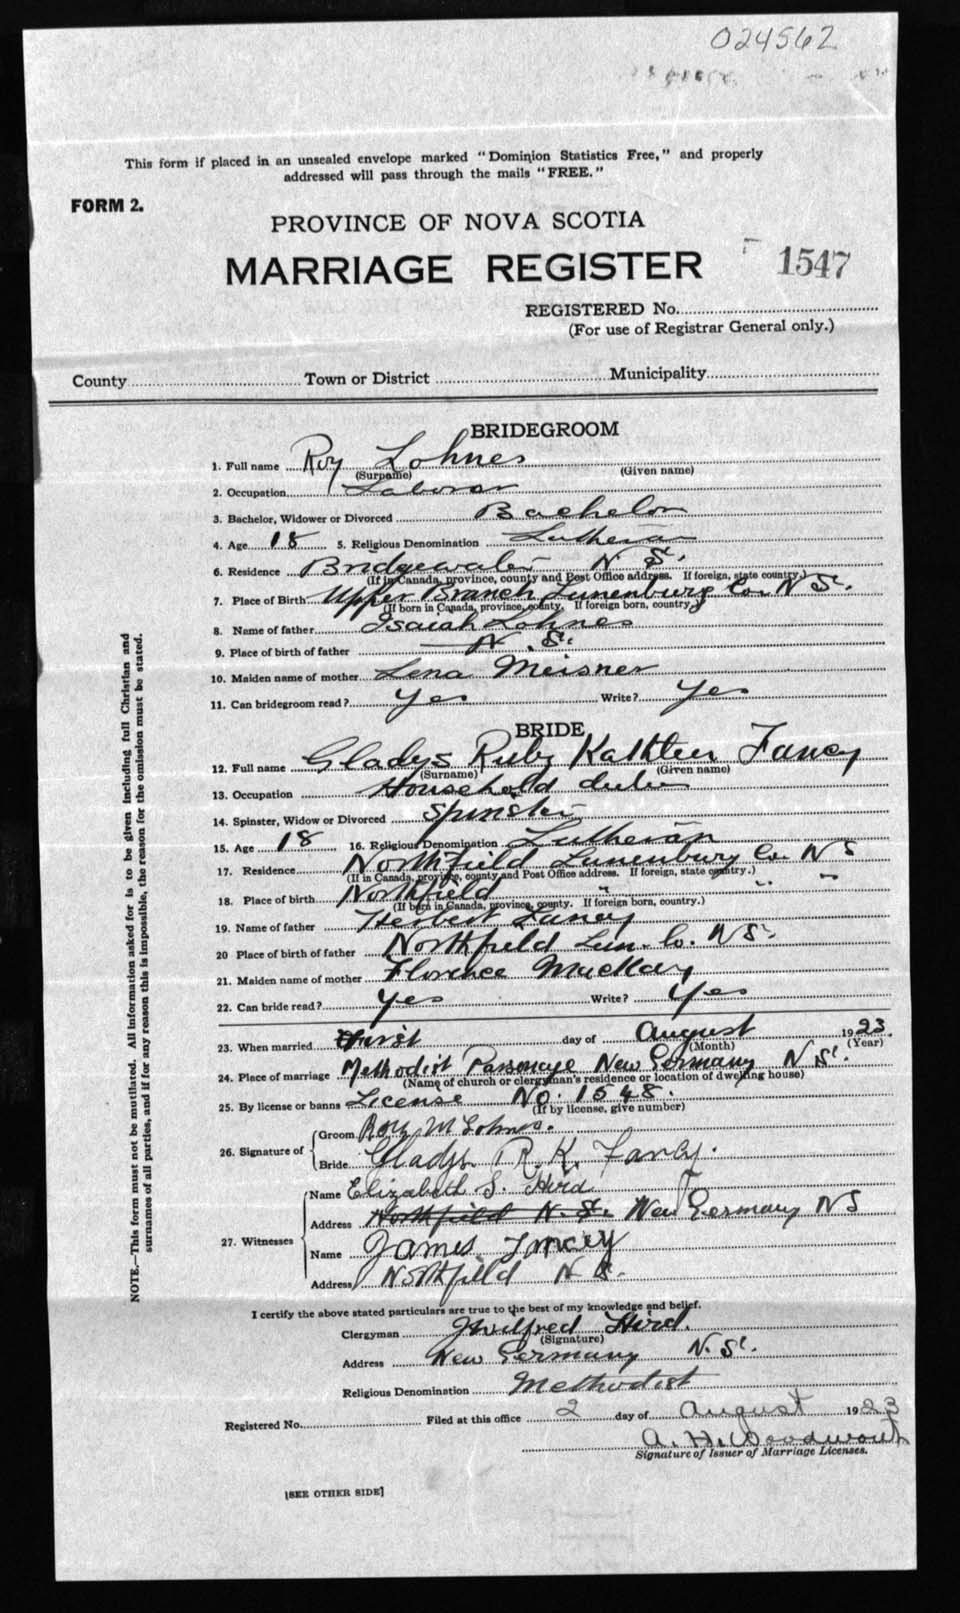 024562
This form if placed in an unsealed envelope marked "Dominion Statistics Free," and properly
addressed will pass through the mails "FREE."
FORM 2.
PROVINCE OF NOVA SCOTIA
MARRIAGE REGISTER
1547
REGISTERED No.
(For use of Registrar General only.)
County Town or District Municipality
BRIDEGROOM
1. Full name Roy Lohnes
(Surname) (Given name)
2. Occupation Laborer
3. Bachelor, Widower or Divorced Bachelor
4. Age 18 5. Religious Denomination Lutheran
6. Residence Bridgewater N S.
(If in Canada, province, county and Post Office address. If foreign, state country.)
7. Place of Birth Upper Branch Lunenburg Co. N S.
(If born in Canada, province, county. If foreign born, country.)
8. Name of father Isaiah Lohnes
9. Place of birth of father N. S.
10. Maiden name of mother Lena Meisner
11. Can bridegroom read? Yes Write? Yes
BRIDE
12. Full name Gladys Ruby Kathleen Fancy
(Surname) (Given name)
13. Occupation Household duties
14. Spinster, Widow or Divorced Spinster
15. Age 18 16. Religious Denomination Lutheran
17. Residence Northfield Lunenburg Co. N S
(If in Canada, province, county and Post Office address. If foreign, state country.)
18. Place of birth Northfield " " "
(If born in Canada, province, county. If foreign born, country.)
19. Name of father Herbert Fancy
20 Place of birth of father Northfield Lun. Co. N S.
21. Maiden name of mother Florence MacKay
22. Can bride read? Yes Write? Yes
23. When married First day of August 1923
(Month) (Year)
24. Place of marriage Methodist Parsonage New Germany N S.
(Name of church or clergyman's residence or location of dwelling house)
25. By license or banns License No. 1548.
(If by license, give number)
26. Signature of Groom Roy M Lohnes.
Bride Gladys R. K. Fancy.
27. Witnesses Name Elizabeth S. Hird
Address Northfield N. S. New Germany N S
Name James Fancey
Address Northfield N S.
I certify the above stated particulars are true to the best of my knowledge and belief.
Clergyman J Wilfred Hird.
(Signature)
Address New Germany N. S.
Religious Denomination Methodist
Registered No. Filed at this office 2 day of August 1923
A. H. Woodworth
Signature of Issuer of Marriage Licenses.
[SEE OTHER SIDE]
NOTE.—This form must not be mutilated. All information asked for is to be given including full Christian and
surnames of all parties, and if for any reason this is impossible, the reason for the omission must be stated.